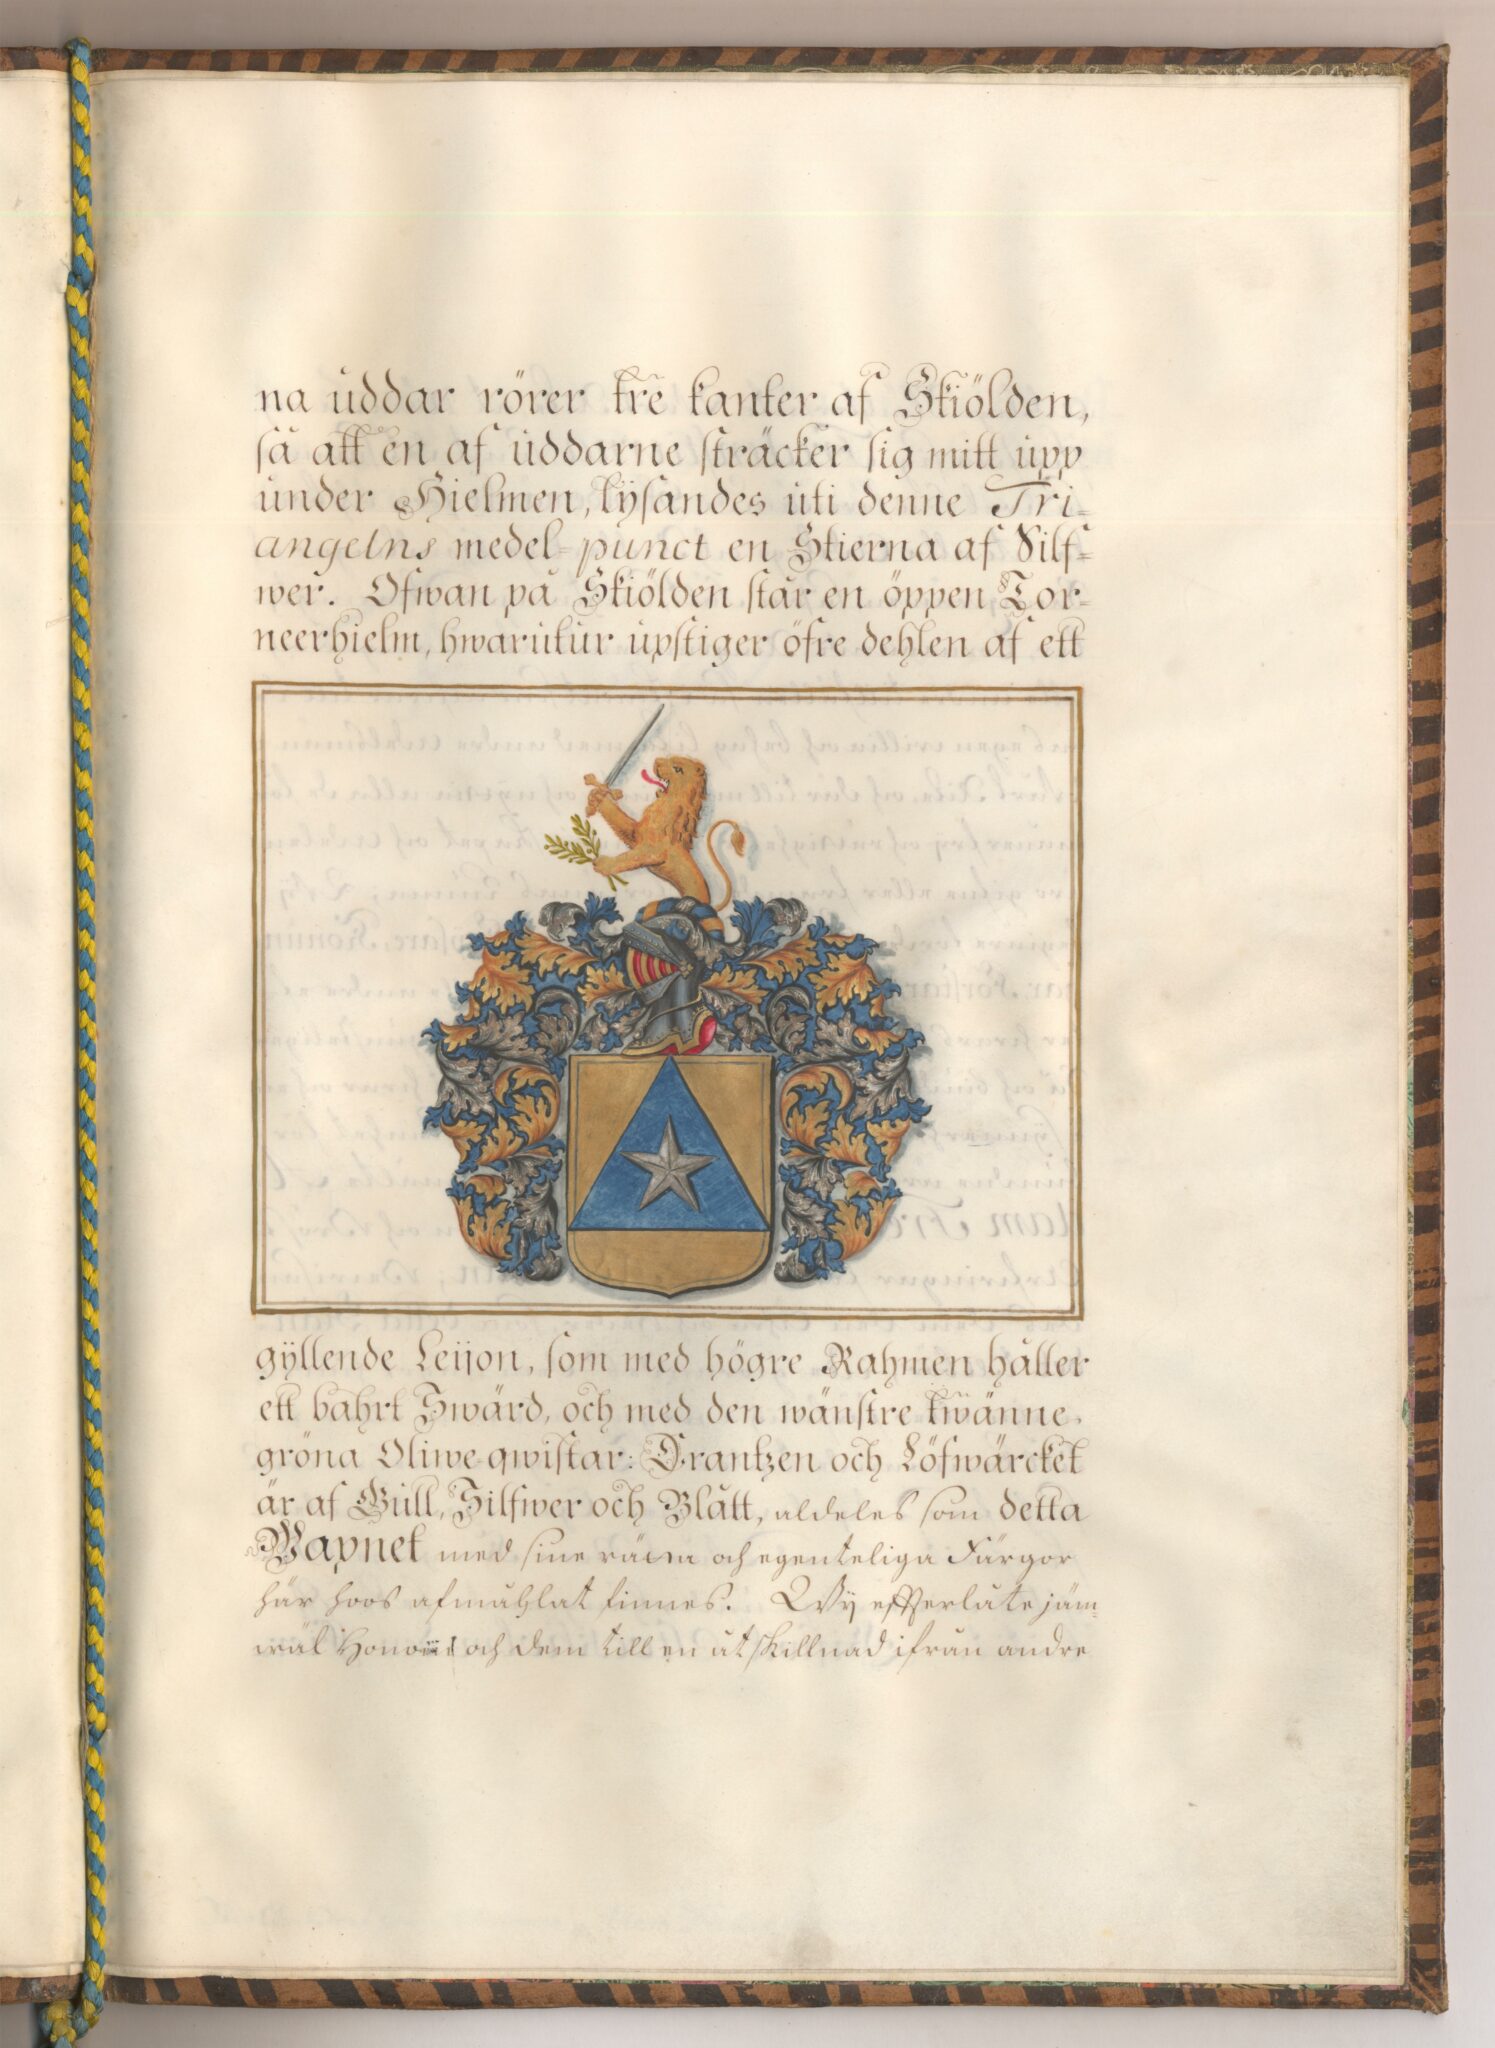 na uddar rörer tre kanter af Skiölden,
så att en af uddarne sträcker sig mitt upp
under Hielmen, lysandes uti denne Tri-
angelns medel-punct en Stierna af Silf-
wer. Ofwan på Skiölden står en öppen Tor-
neerhielm, hwarutur upstiger öfre dehlen af ett
gyllende Leijon, som med högre Rahmen håller
ett bahrt Swärd, och med den wänstre twänne
gröna Oliwe qwistar: Crantzen och Löfwärcket
är af Gull, Silfwer och Blått, aldeles som detta
Wapnet med sine rätta och egenteliga Färgor
här hoos afmåhlat finnes. Wij efterlåte jäm-
wäl Honom och dem till en åtskillnad ifrån andre